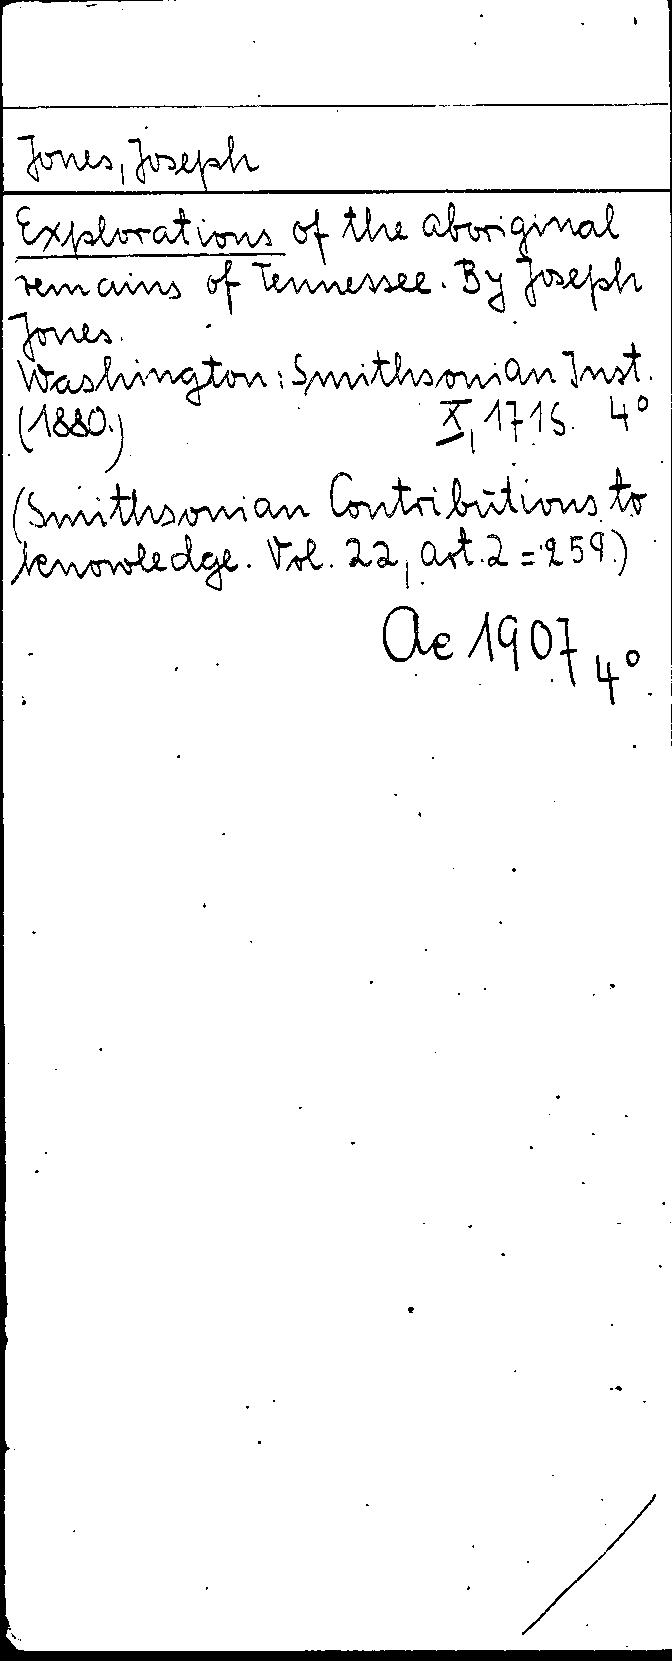 Jones, Joseph
Explorations of the aboriginal
remains of Tennessee. By Joseph
Jones.
Washington: Smithsonian Inst.
(1880.) X, 171 S. 4°
(Smithsonian Contributions to
knowledge. Vol. 22, art. 2 = 259.)
Ae 1907 4°